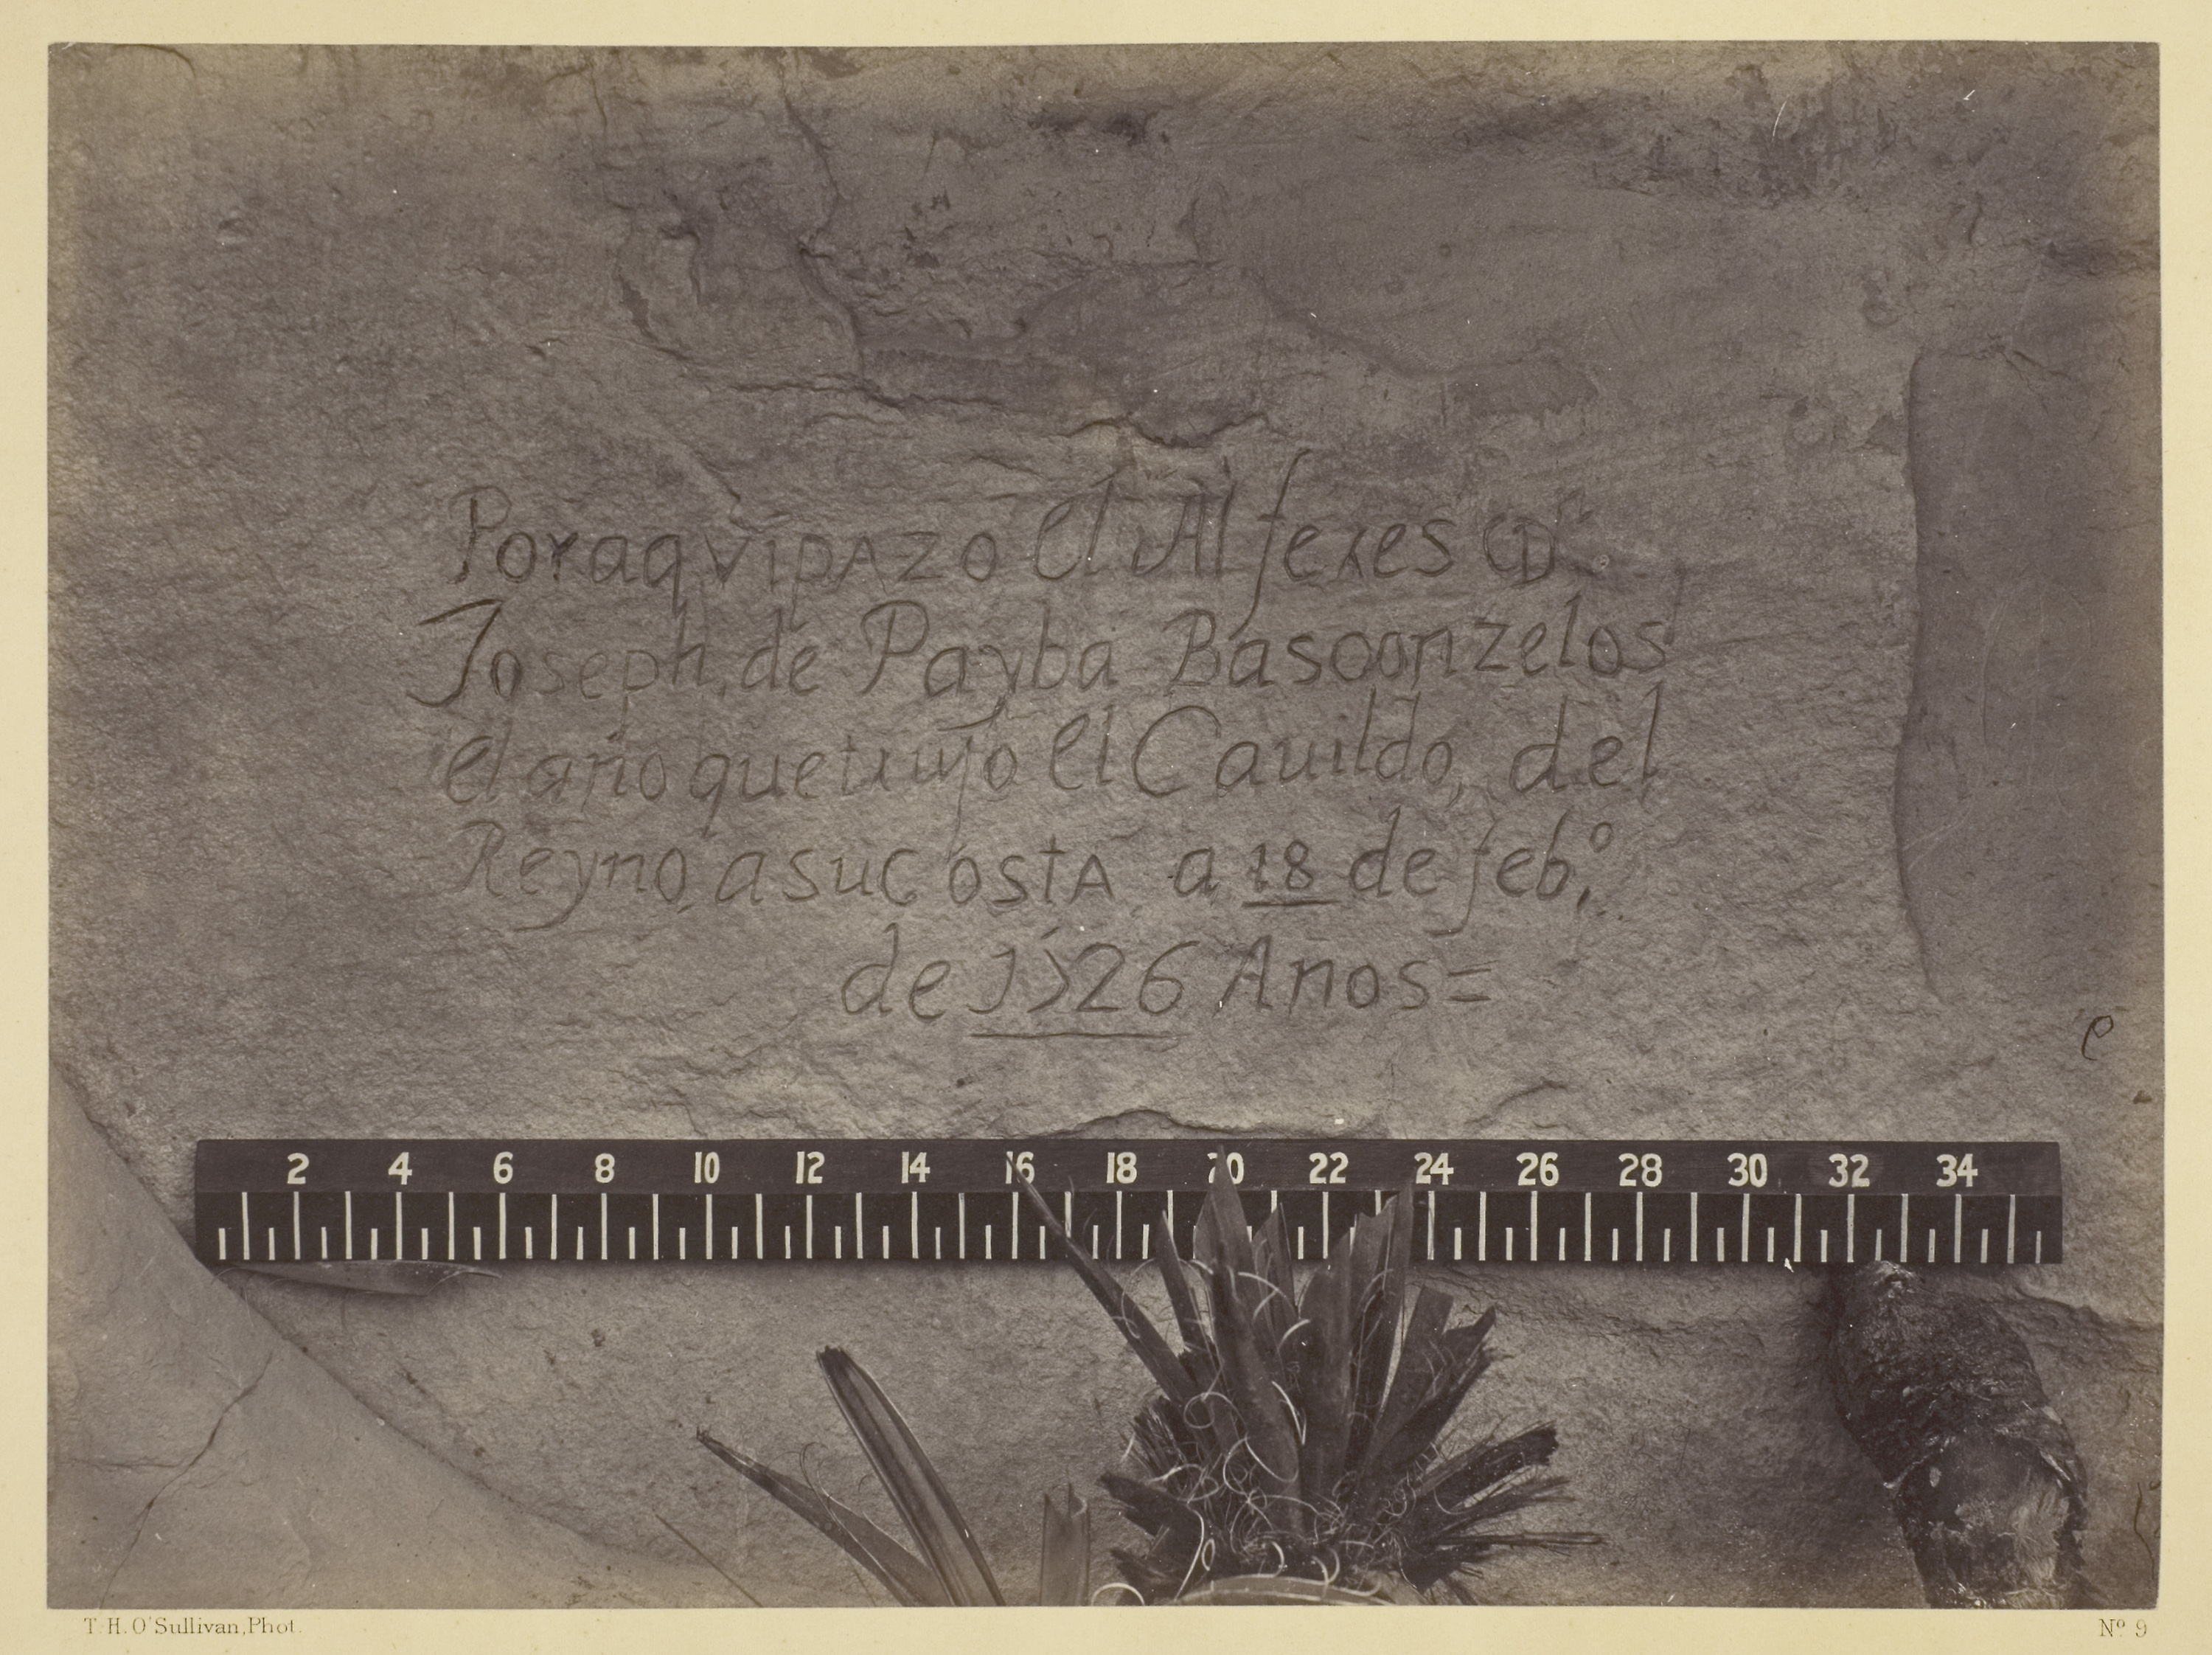 Por aqvi pazo el Alfexes Dn
Joseph, de Payba Basconzelos
el año que trujo el Cauildo, del
Reyno, a su costa a 18 de feb,o
de 1726 Años=
2 4 6 8 10 12 14 16 18 20 22 24 26 28 30 32 34
e
T. H. O'Sullivan, Phot.
No 9